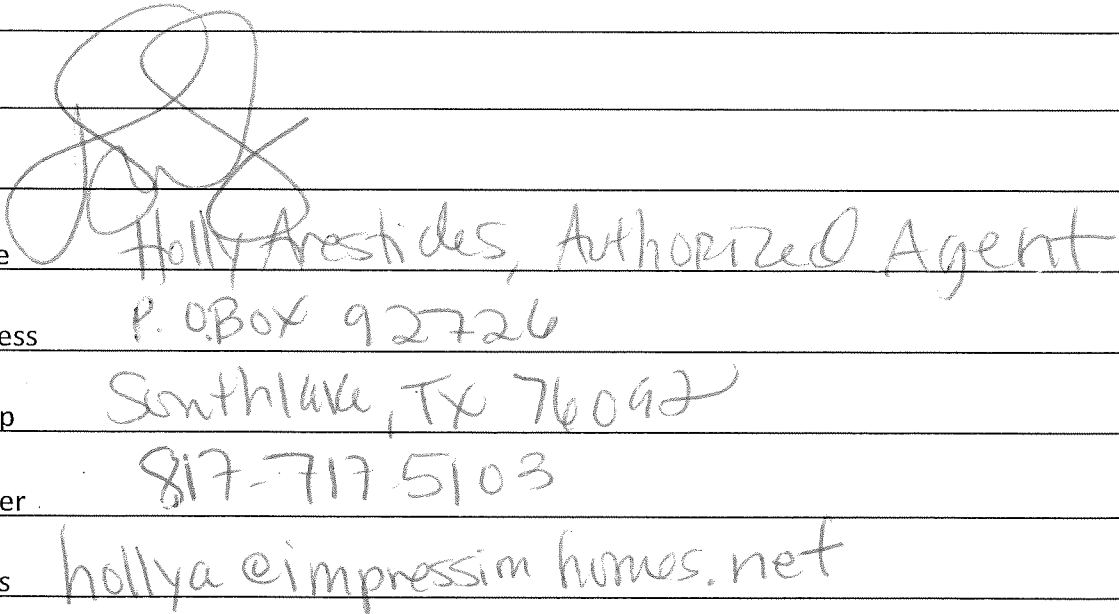 e Holly Arestides, Authorized Agent
ess P.O.Box 92726
p Southlake, TX 76092
er 817-717-5103
s hollya@impressionhomes.net